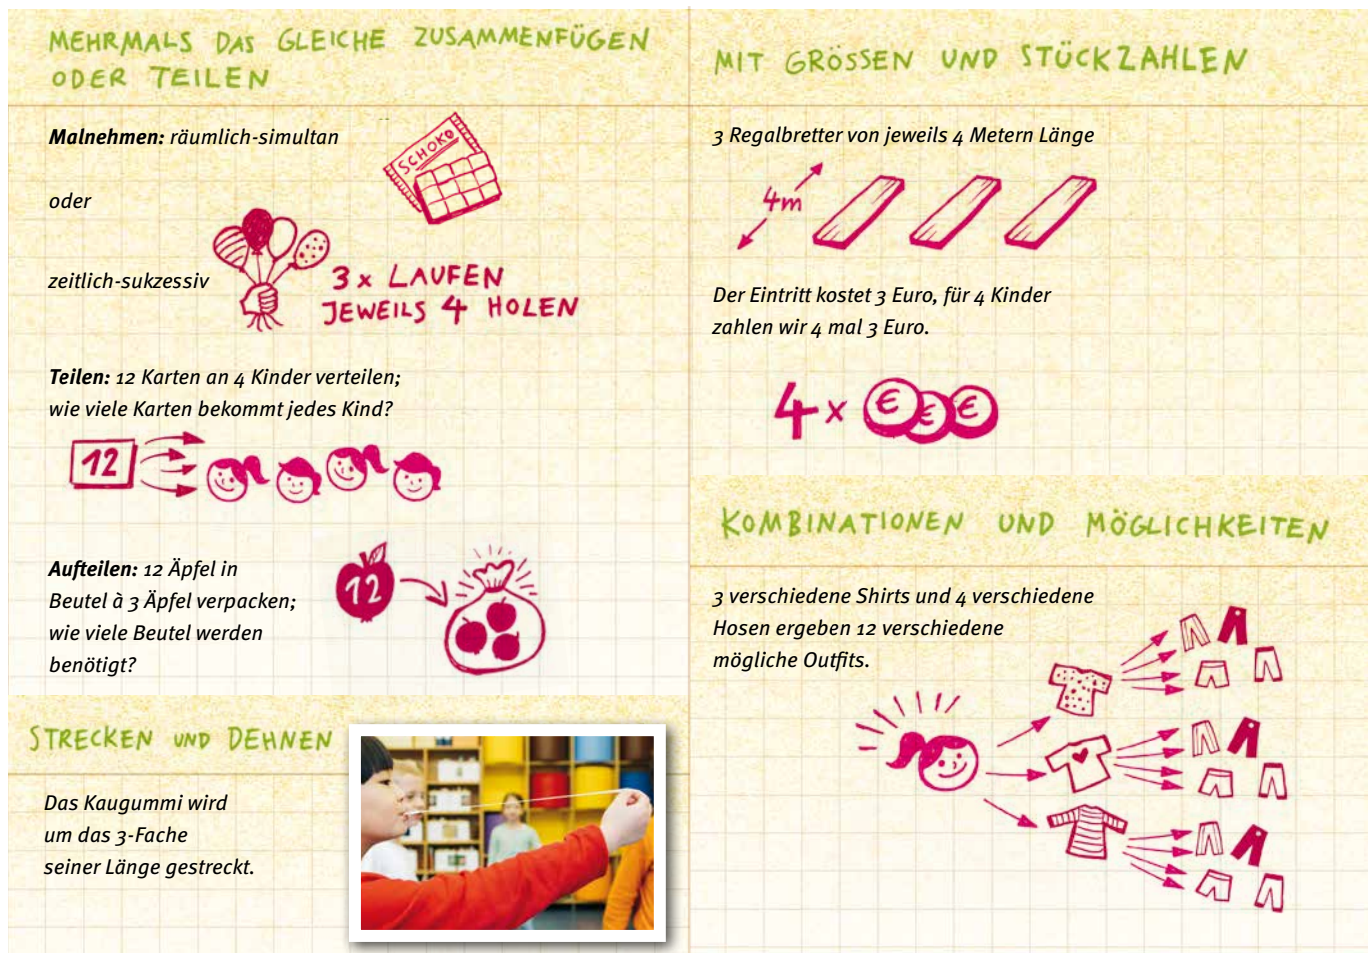 MEHRMALS DAS GLEICHE ZUSAMMENFÜGEN
ODER TEILEN
Malnehmen: räumlich-simultan
SCHOKO
oder
zeitlich-sukzessiv
3 x LAUFEN
JEWEILS 4 HOLEN
Teilen: 12 Karten an 4 Kinder verteilen;
wie viele Karten bekommt jedes Kind?
12
Aufteilen: 12 Äpfel in
Beutel à 3 Äpfel verpacken;
wie viele Beutel werden
benötigt?
12
STRECKEN UND DEHNEN
Das Kaugummi wird
um das 3-Fache
seiner Länge gestreckt.
MIT GRÖSSEN UND STÜCKZAHLEN
3 Regalbretter von jeweils 4 Metern Länge
4m
Der Eintritt kostet 3 Euro, für 4 Kinder
zahlen wir 4 mal 3 Euro.
4 x € € €
KOMBINATIONEN UND MÖGLICHKEITEN
3 verschiedene Shirts und 4 verschiedene
Hosen ergeben 12 verschiedene
mögliche Outfits.